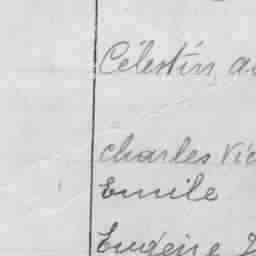 Célestin
charles Vic
Emile
Eugène